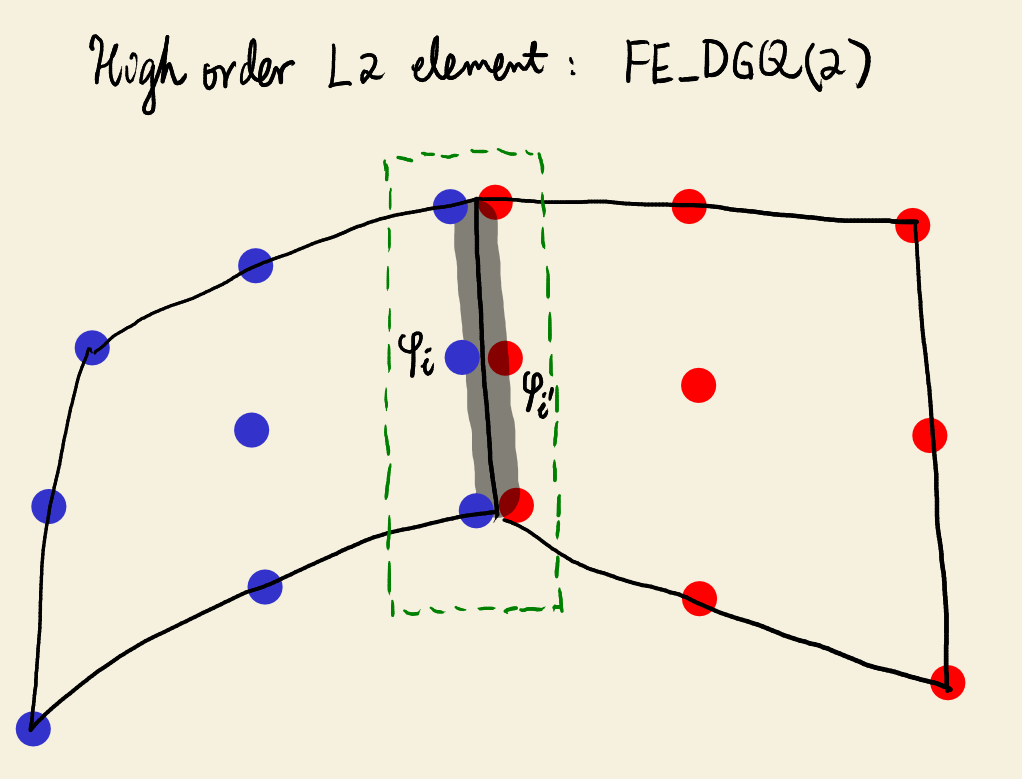 High order L2 element: FE_DGQ(2)
φi
φi'